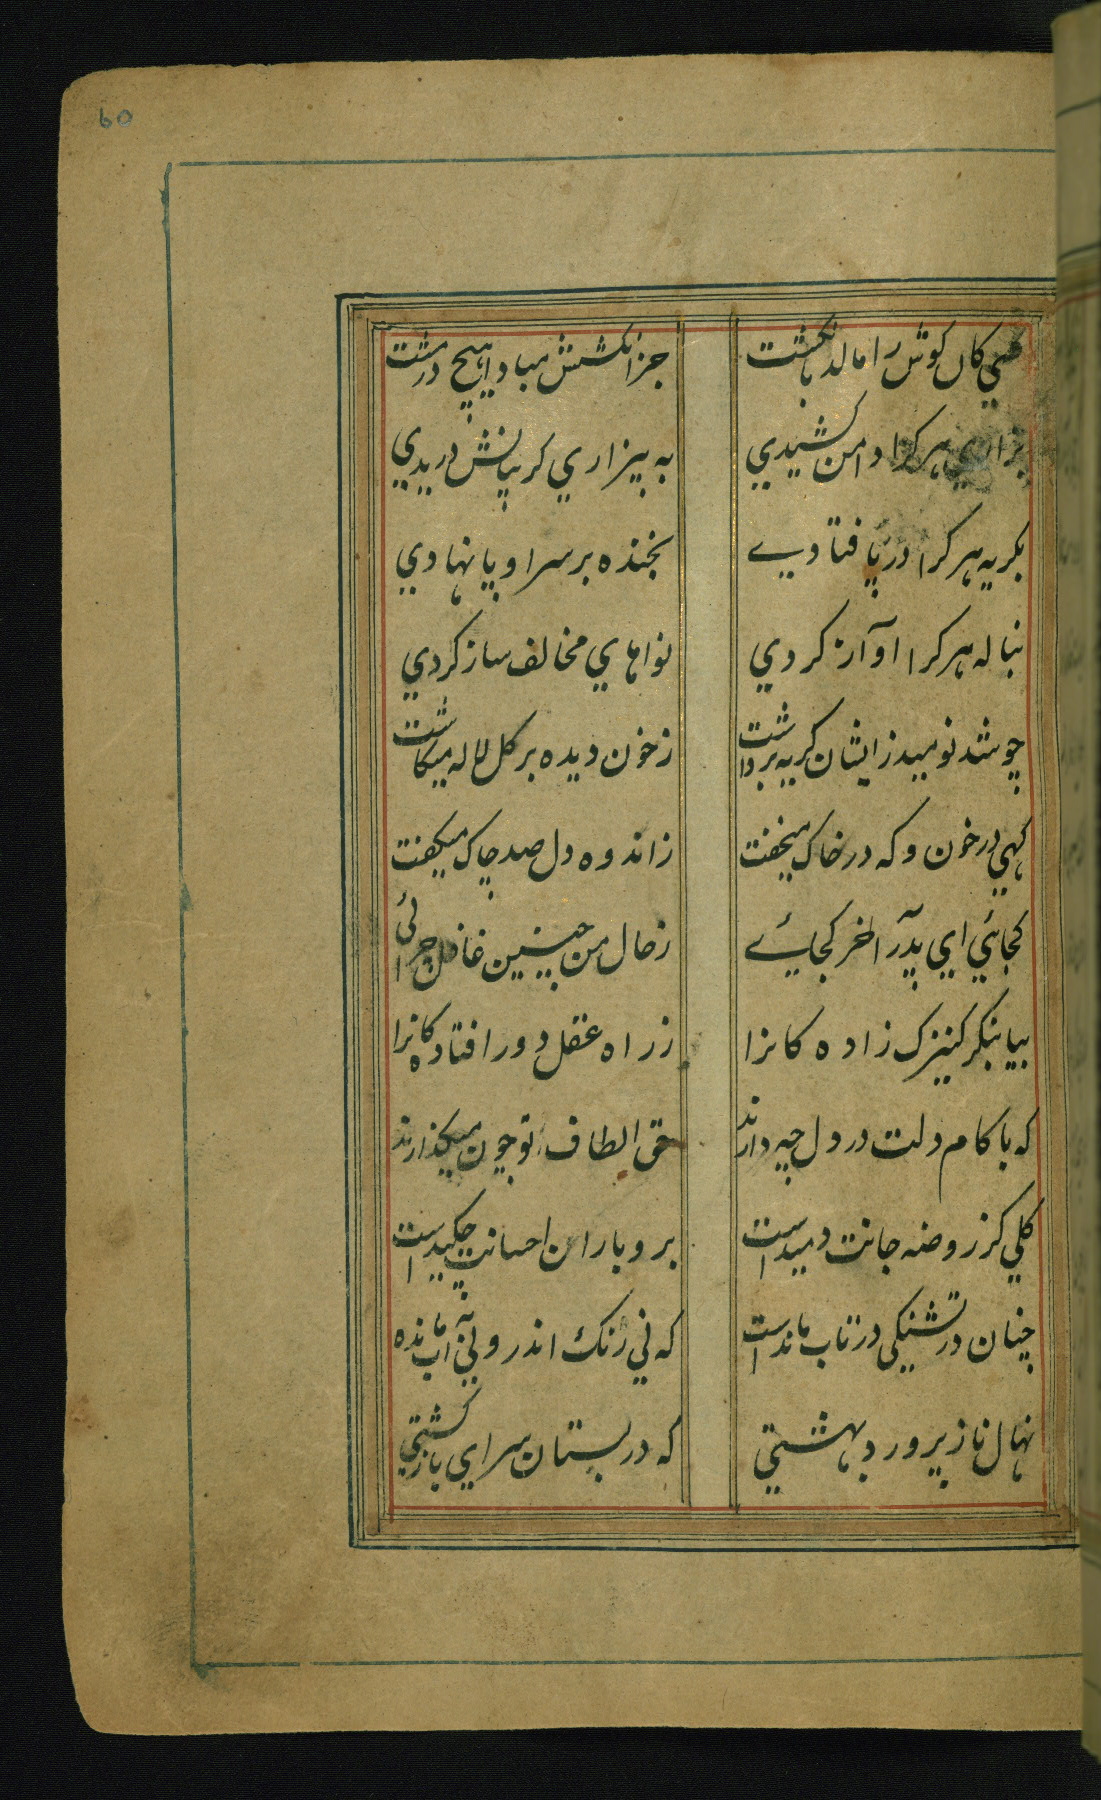 60
کسي کان کوش را مالد بانکشت جز انکشتش مبادا هیچ در مشت
بزاري هر کرا دامن کشیدي به بیزاري کریبانش دریدي
بکریه هر کرا در پا فتادیے بخنده بر سر او پا نهادي
بناله هر کرا آواز کردي نواهاي مخالف ساز کردي
چو شد نومید زایشان کریه برداشت زخون دیده بر کل لاله میکاشت
کهي در خون و که در خاک میخفت زاندوه دل صد چاک میکفت
کجائي ایي پدر آخر کجائے زحال من چنین غافل چرائي
بیا بنکر کنیزک زاده کانرا زراه عقل دور افتاده کانرا
که با کام دلت در دل چه دارند حق الطاف تو چون میکذارند
کلي کز روضه جانت دمیدست برو باران احسانت چکیدست
چنان در تشنکي در تاب ماندست که ني رنک اندرو نی آب مانده
نهال ناز پرورد بهشتي که در بستان سراي باز کشتي